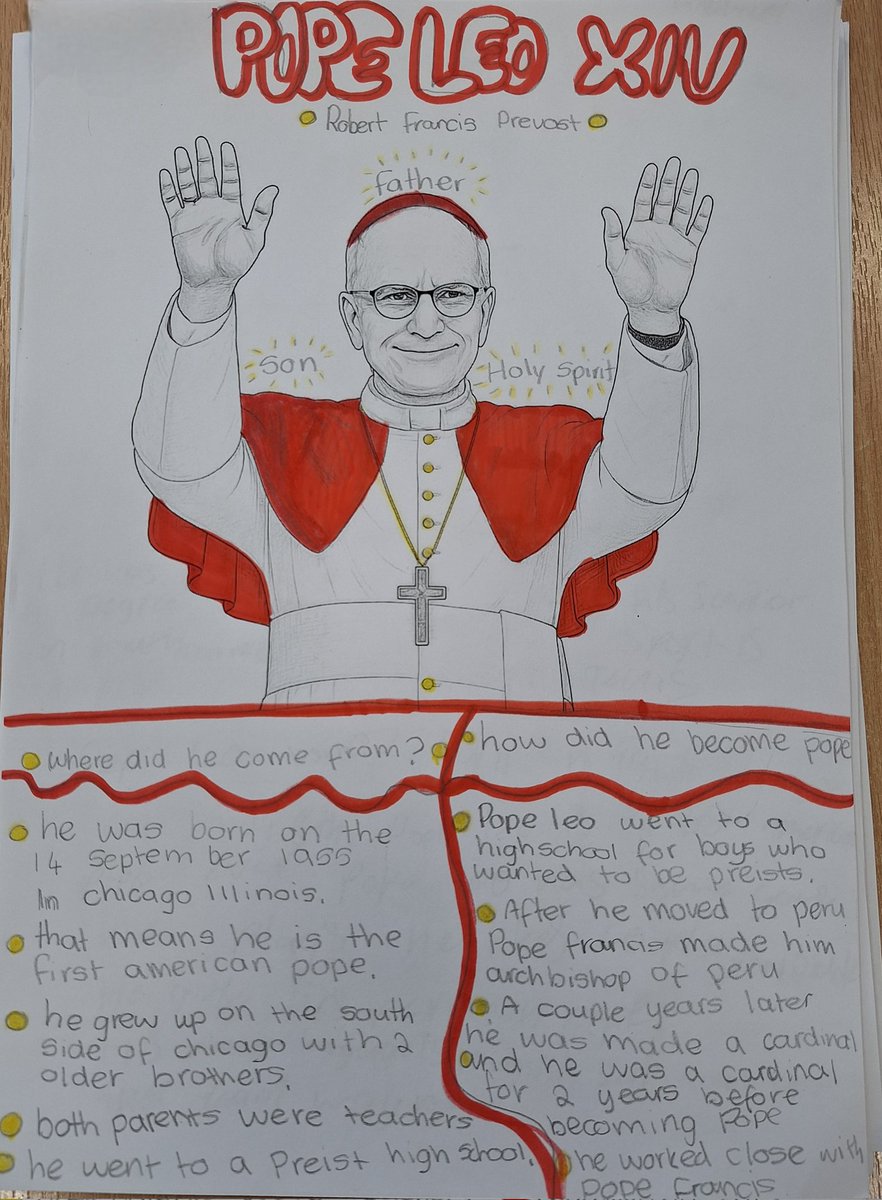 POPE LEO XIV
Robert Francis Prevost
Father
Son
Holy Spirit
where did he come from?
he was born on the
14 September 1955
In chicago Illinois.
that means he is the
first american pope.
he grew up on the south
side of chicago with 2
older brothers.
both parents were teachers
he went to a Preist high school.
how did he become pope
Pope leo went to a
highschool for boys who
wanted to be preists.
After he moved to peru
Pope francis made him
archbishop of peru
A couple years later
he was made a cardinal
and he was a cardinal
for 2 years before
becoming Pope
he worked close with
Pope Francis